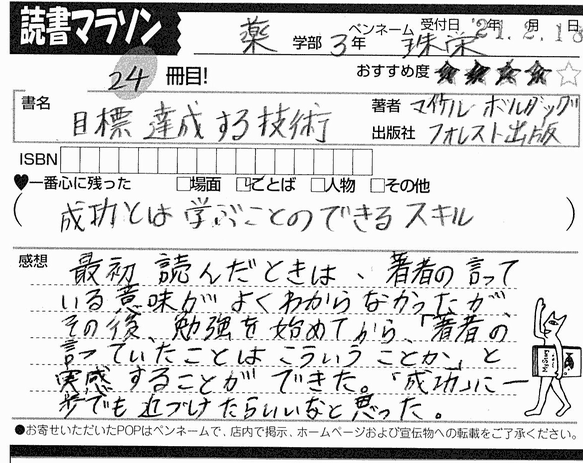 読書マラソン
薬 学部 3年 ペンネーム 珠栄 受付日 '21.2.18
年 月 日
24 冊目! おすすめ度 ★★★★☆
書名 目標達成する技術
著者 マイケル・ボルダック
出版社 フォレスト出版
ISBN
♥一番心に残った □場面 □ことば □人物 □その他
(成功とは学ぶことのできるスキル)
感想
最初読んだときは、著者の言って
いる意味がよくわからなかったが、
その後、勉強を始めてから、「著者の
言っていたことはこういうことか」と
実感することができた。「成功」に一
歩でも近づけたらいいなと思った。
●お寄せいただいたPOPはペンネームで、店内で掲示、ホームページおよび宣伝物への転載をご了承ください。